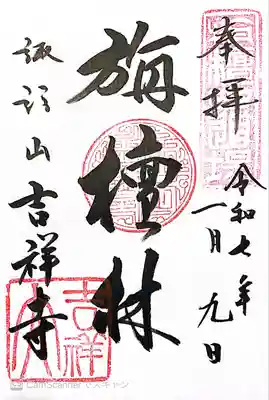 奉拝
令和七年
一月九日
旃檀林
諏訪山吉祥寺
吉祥
CamScanner でスキャン